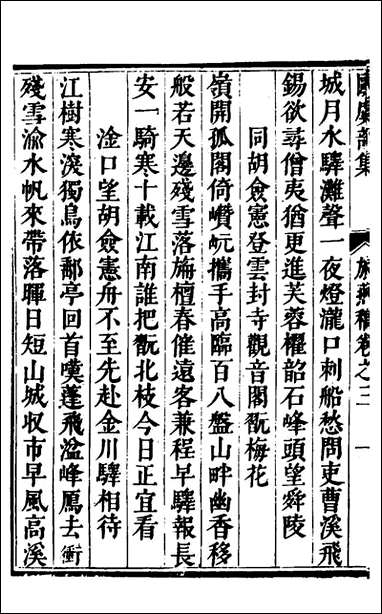 詩集
卷之三
一
城月水驛灘聲一夜燈瀧口刺船愁問吏曹溪飛
錫欲尋僧夷猶更進芙蓉櫂韶石峰頭望舜陵
同胡僉憲登雲封寺觀音閣翫梅花
嶺開孤閣倚巑岏攜手高臨百八盤山畔幽香移
般若天邊殘雪落旃檀春催遠客兼程早驛報長
安一騎寒十載江南誰把翫北枝今日正宜看
淦口望胡僉憲舟不至先赴金川驛相待
江樹寒深獨鳥依鄱亭回首嘆蓬飛湓峰鴈去衝
殘雪渝水帆來帶落暉日短山城収市早風高溪